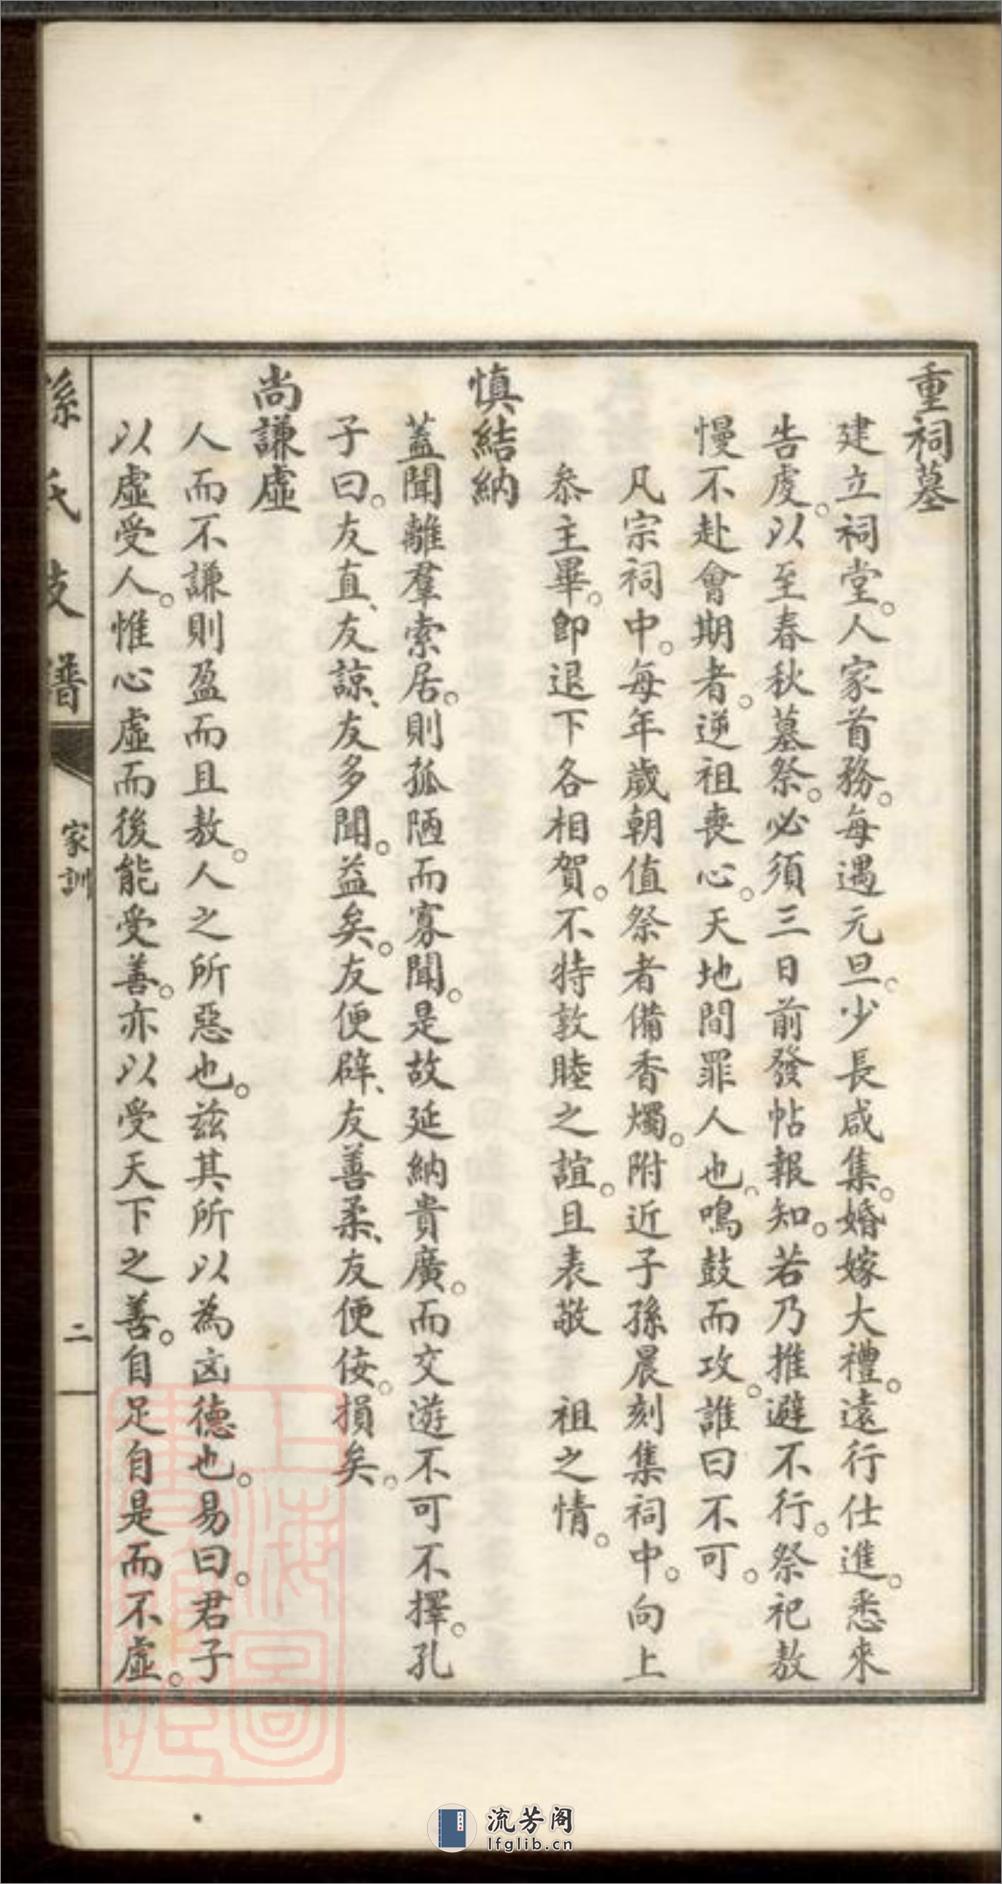 重祠墓
建立祠堂。人家首務。每遇元旦。少長咸集。婚嫁大禮。遠行仕進。悉來
告虔。以至春秋墓祭。必須三日前發帖報知。若乃推避不行。祭祀敖
慢不赴會期者。逆祖喪心。天地間罪人也。鳴鼓而攻。誰曰不可。
凡宗祠中。每年歲朝值祭者備香燭。附近子孫晨刻集祠中。向上
叅主畢。即退下各相賀。不特敦睦之誼。且表敬　祖之情。
慎結納
蓋聞離羣索居。則孤陋而寡聞。是故延納貴廣。而交遊不可不擇。孔
子曰。友直、友諒、友多聞。益矣。友便辟、友善柔、友便佞。損矣。
尚謙虛
人而不謙則盈而且敖。人之所惡也。茲其所以為凶德也。易曰。君子
以虛受人。惟心虛而後能受善。亦以受天下之善。自足自是而不虛。
孫氏支譜
家訓
二
上海圖書館藏
流芳阁
lfglib.cn